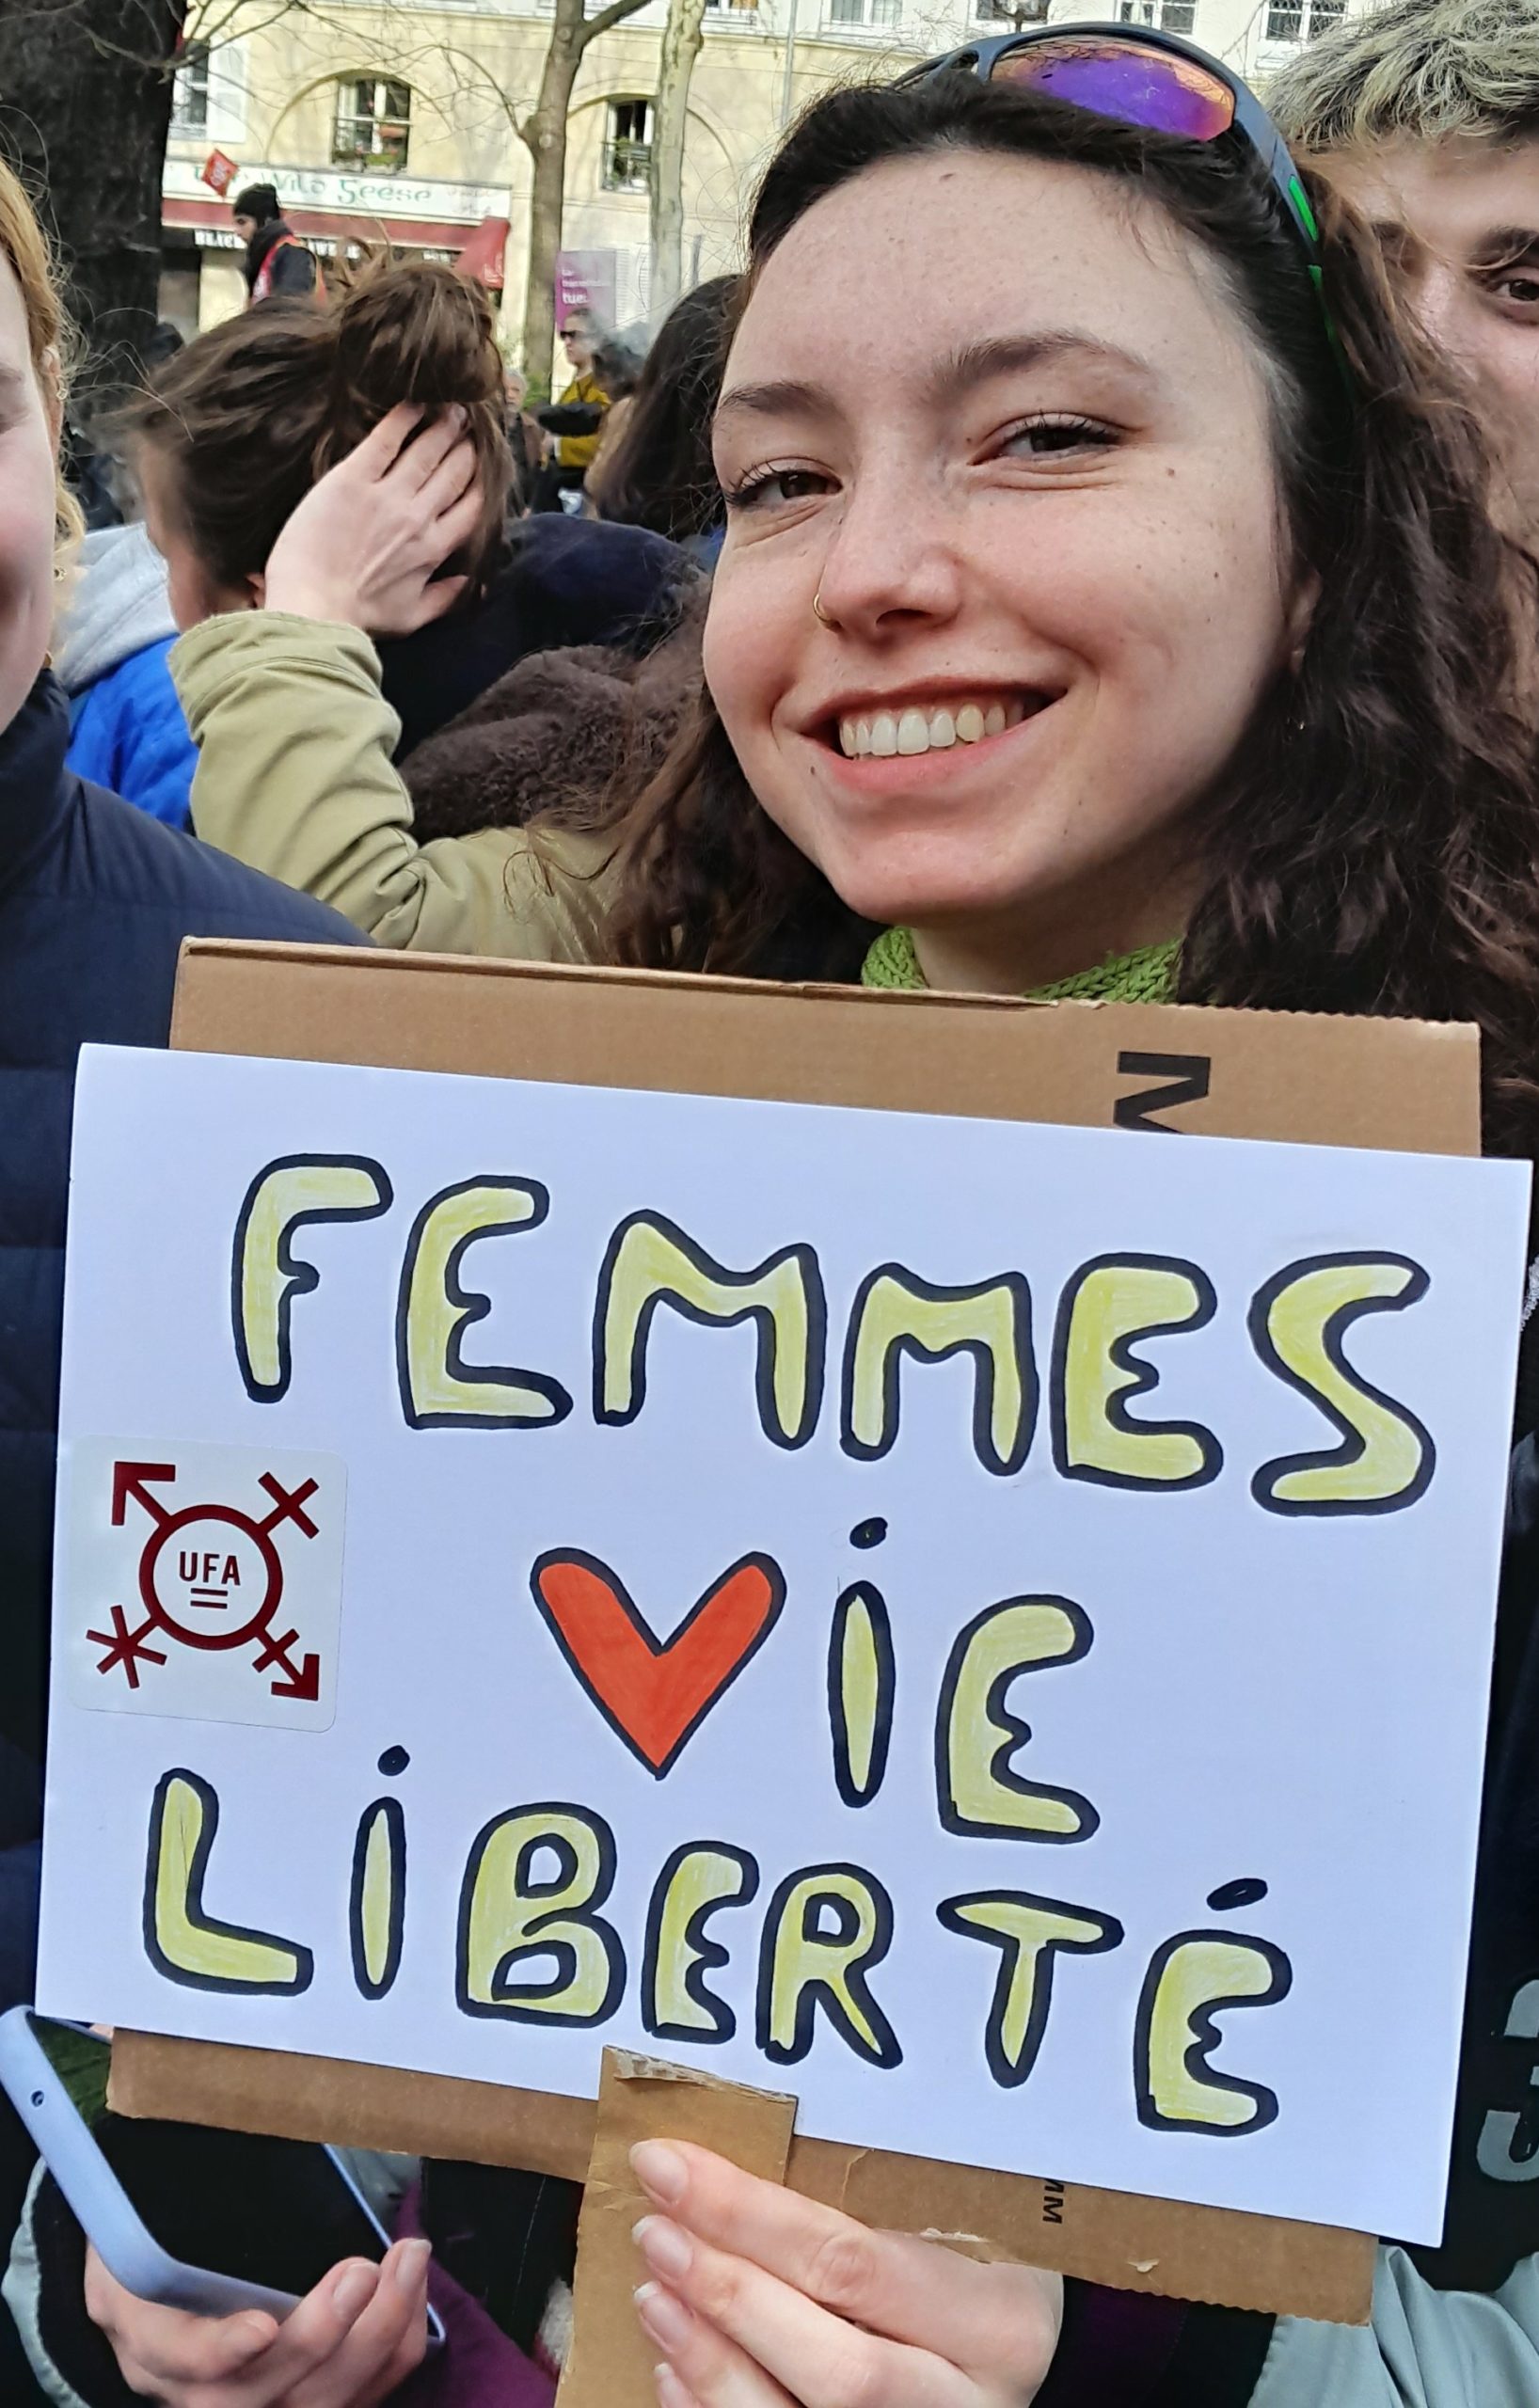 Wild Geese
tue
M
FEMMES
UFA
ViE
LiBERTÉ